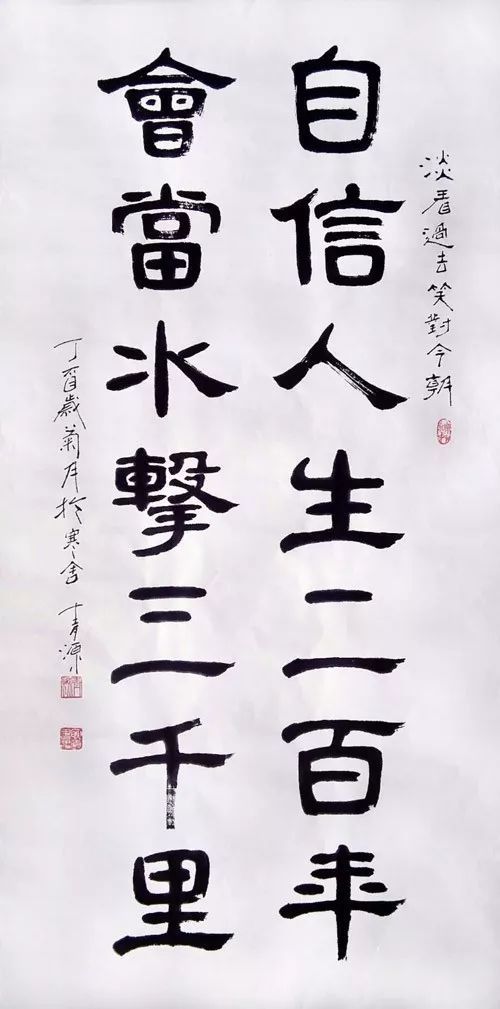 淡看過去笑對今朝
自信人生二百年
會當水擊三千里
丁酉歲菊月於寒舍 青源